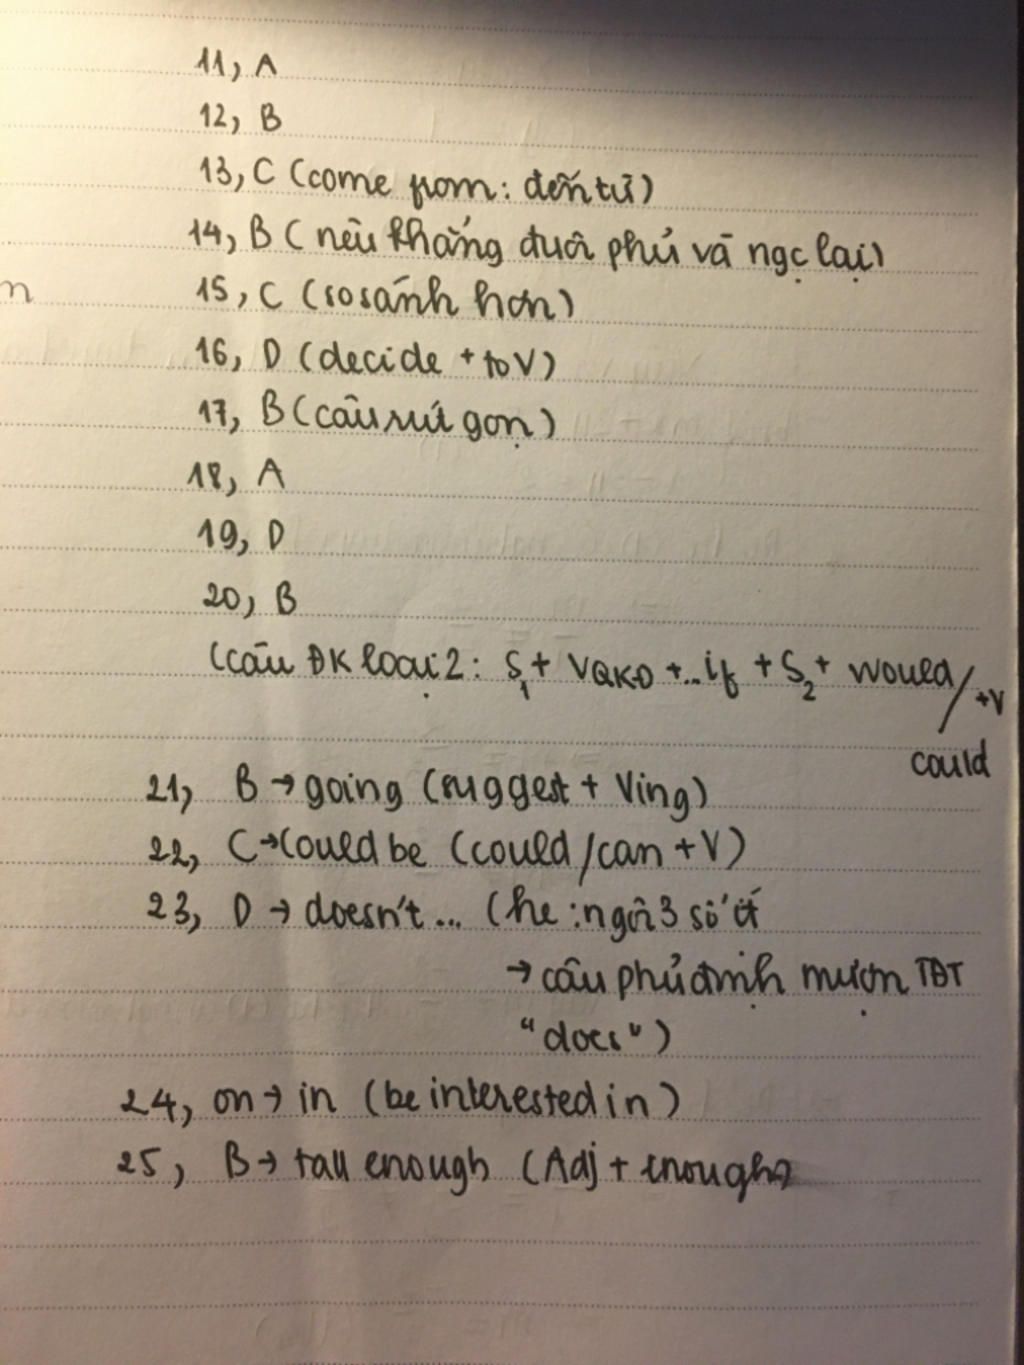 11, A
12, B
13, C (come from: đến từ)
14, B (nếu khẳng đuôi phủ và ngc lại)
n
15, C (so sánh hơn)
16, D (decide + to V)
17, B (câu rút gọn)
18, A
19, D
20, B
(câu ĐK loại 2: S1 + VQKĐ +.. if + S2 + would/could +V
21, B → going (suggest + Ving)
22, C → Could be (could/can + V)
23, D → doesn't... (he : ngôi 3 số ít
→ câu phủ định mượn TĐT
"does")
24, on → in (be interested in)
25, B → tall enough (Adj + enough)